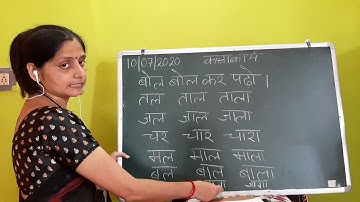 10/07/2020 कक्षाकार्य
बोल बोल कर पढो ।
तल ताल ताला
जल जाल जाला
चर चार चारा
मल माल माला
बल बाल बाला